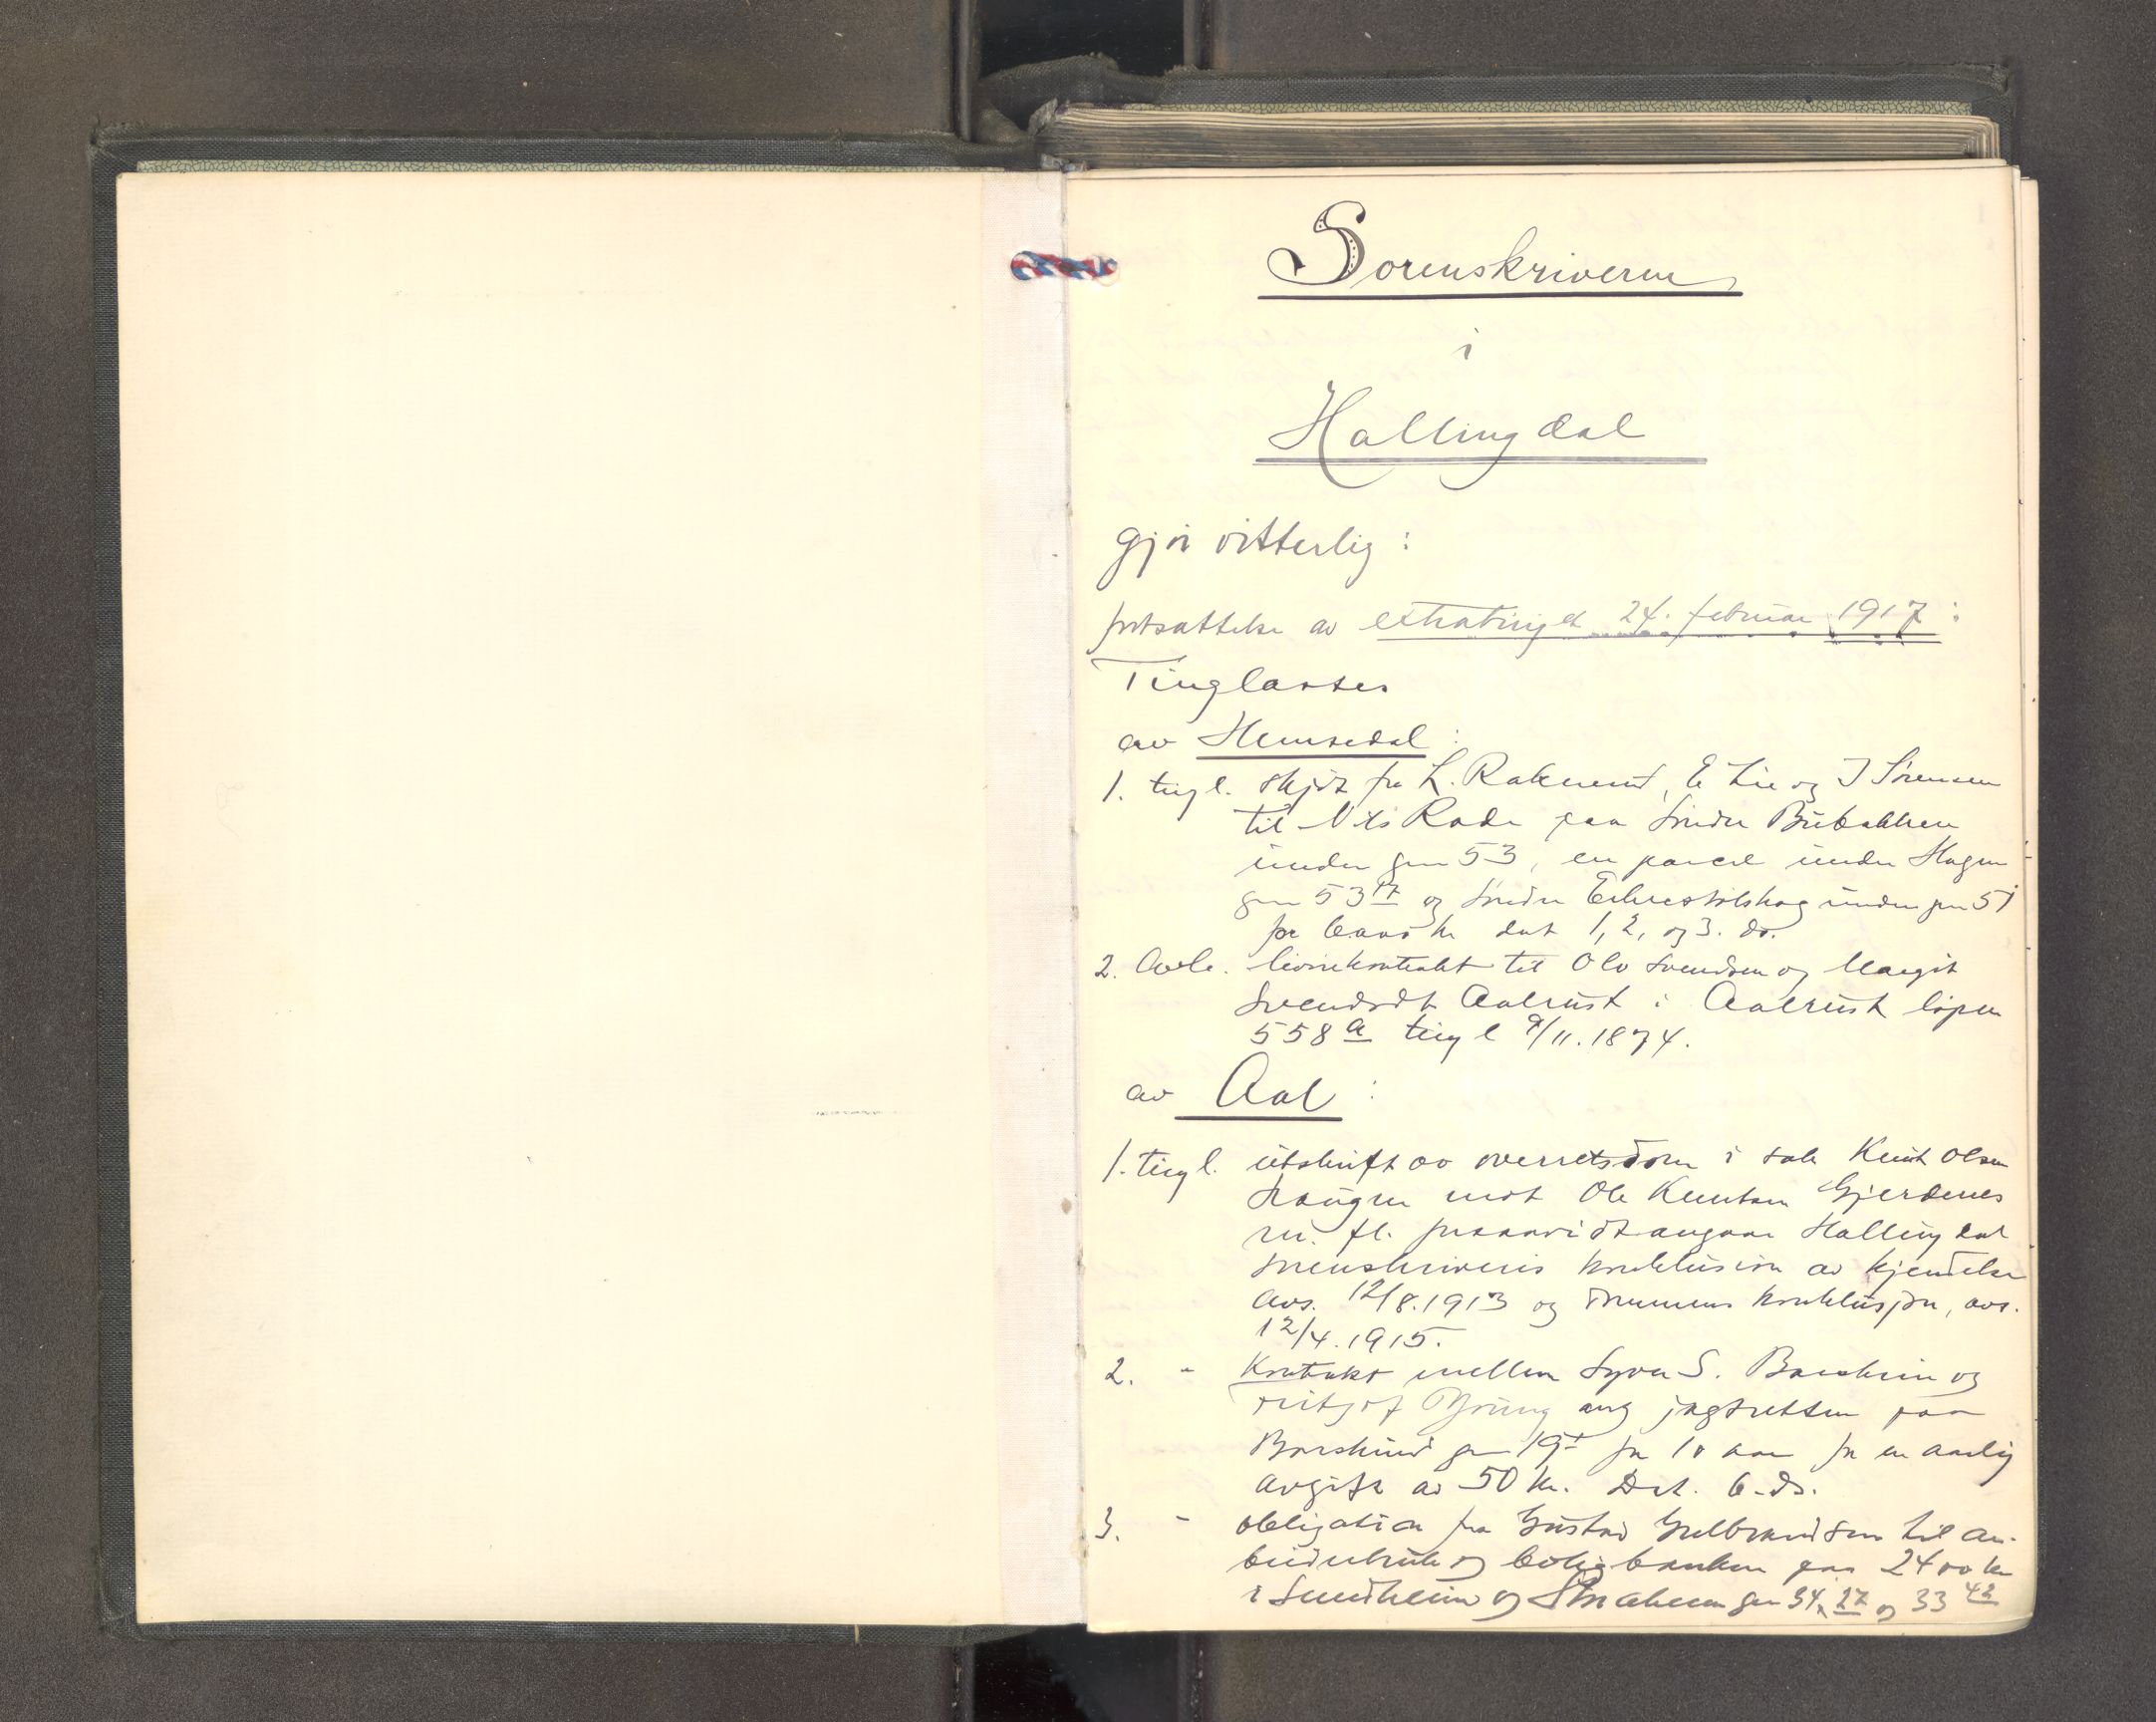 Sorenskriveren
i
Hallingdal
gjør vitterlig:
fortsættelse av extratinget 24. februar 1917:
Tinglæstes
av Hemsedal:
1. tingl. skjøt fra L. Raknerud, E Lie og J Sørensen
til Nils Rade paa Søndre
under gnr 53, en parcel under Hagen
gnr 53 17 og Søndre under gnr 51
for kr dat 1, 2, og 3. ds.
2. Avl. livørekontrakt til Olv Svendsen og Margit
Svendsdt Aalrust i Aalrust løpenr
558 a tingl 9/11. 1874.
av Aal:
1. tingl. utskrift av overretsdom i sak Knut Olsen
Haugen mot Ole Knutsen Gjerdenes
m. fl. forsaavidt angaar Hallingdal
sorenskriveris konklusion av kjendelse
avs. 12/8. 1913 og dommens konklusjon, avs.
12/4. 1915.
2. - Kontrakt mellem Syver S. og
ang jagtretten paa
gnr 19 1 for 10 aar for en aarlig
avgift av 50 kr. Dat. 6. ds.
3. - obligation fra Gustav Gulbrandsen til ar-
beiderbruk og boligbanken paa 2400 kr
i Sundheim og gnr 34, 27 og 33 42